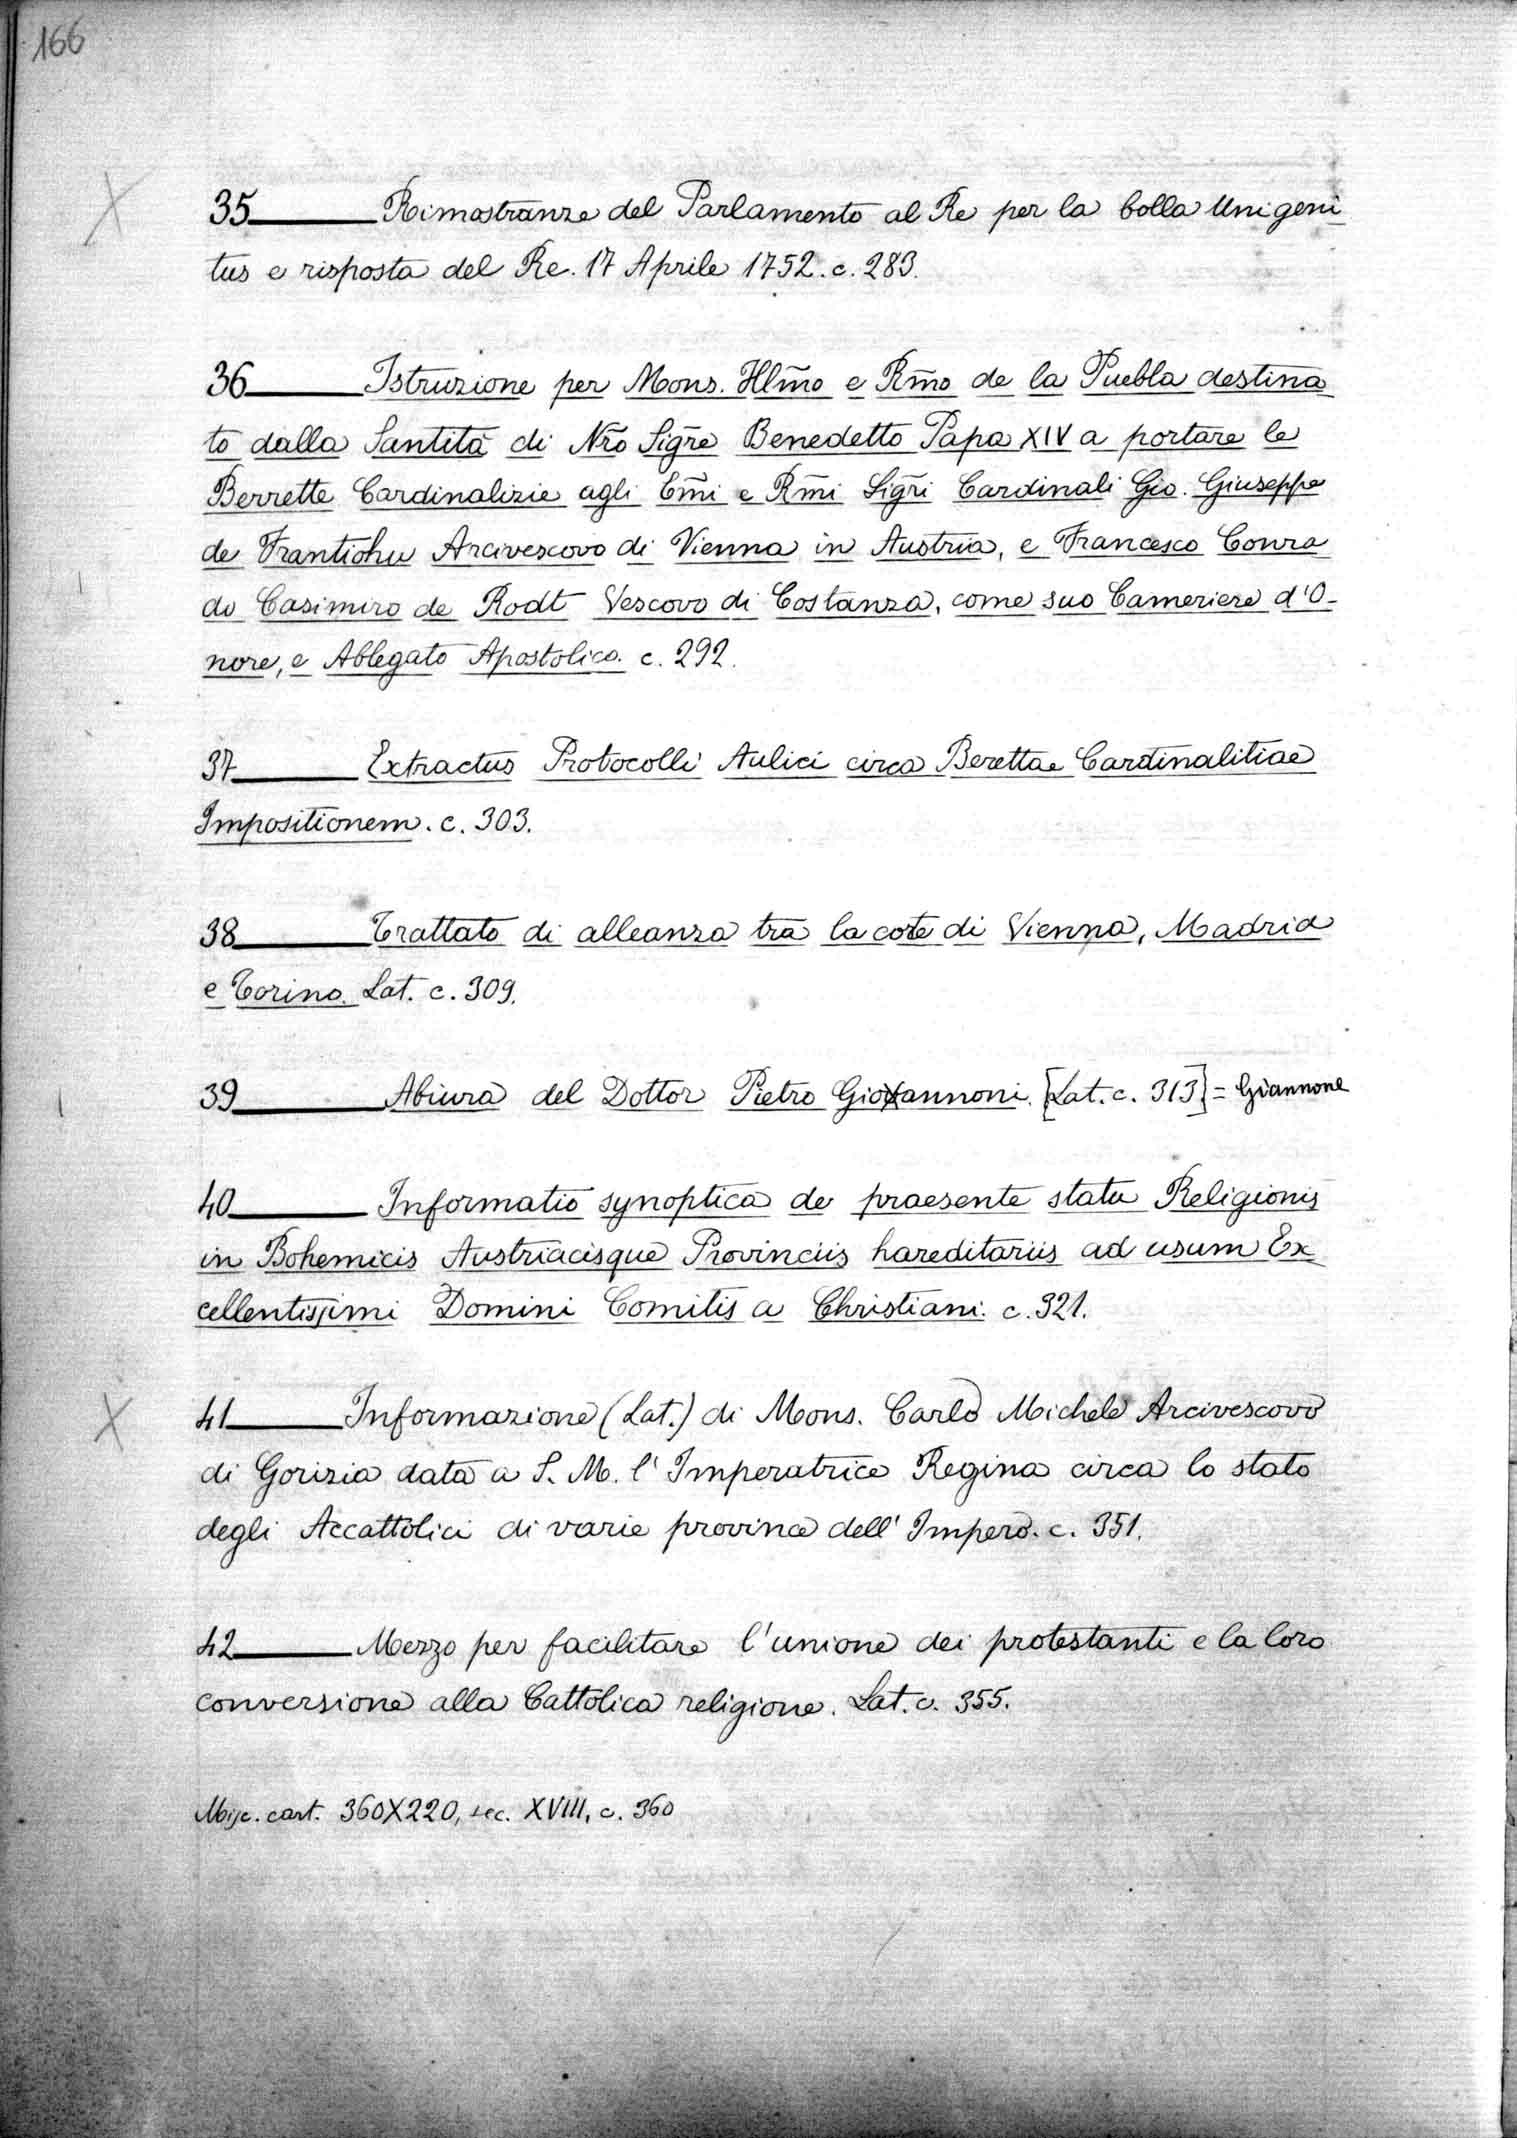 166
35 Rimostranze del Parlamento al Re per la bolla Unigeni
tus e risposta del Re. 17 Aprile 1752. c. 283.
36 Istruzione per Mons. Illm̃o e Rm̃o de la Puebla destina
to dalla Santità di Nr̃o Sigr̃e Benedetto Papa XIV a portare le
Berrette Cardinalizie agli Em̃i e Rm̃i Sigr̃i Cardinali Gio. Giuseppe
de Trantiohu Arcivescovo di Vienna in Austria, e Francesco Conra
do Casimiro de Rodt Vescovo di Costanza, come suo Cameriere d'O-
nore, e Ablegato Apostolico. c. 292.
37 Extractus Protocolli Aulici circa Berettae Cardinalitiae
Impositionem. c. 303.
38 Trattato di alleanza tra la corte di Vienna, Madrid
e Torino. Lat. c. 309.
39 Abiura del Dottor Pietro Gioxannoni. [Lat. c. 313] = Giannone
40 Informatio synoptica de praesente statu Religionis
in Bohemicis Austriacisque Provinciis hareditariis ad usum Ex
cellentissimi Domini Comitis a Christiani. c. 321.
41 Informazione (Lat.) di Mons. Carlo Michele Arcivescovo
di Gorizia data a S. M. l'Imperatrice Regina circa lo stato
degli Accattolici di varie province dell'Impero. c. 351.
42 Mezzo per facilitare l'unione dei protestanti e la loro
conversione alla Cattolica religione. Lat. c. 355.
Misc. cart. 360X220, sec. XVIII, c. 360